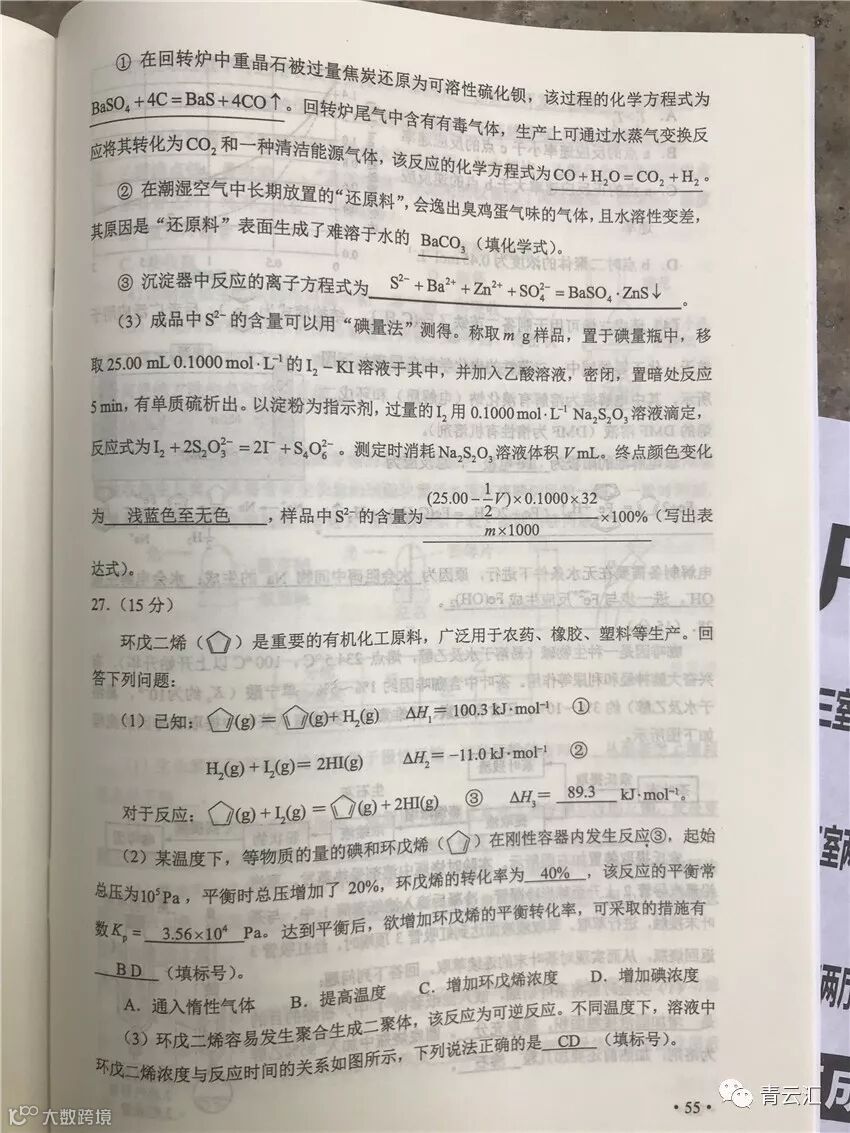 ① 在回转炉中重晶石被过量焦炭还原为可溶性硫化钡，该过程的化学方程式为
BaSO₄ + 4C = BaS + 4CO↑。回转炉尾气中含有有毒气体，生产上可通过水蒸气变换反
应将其转化为CO₂和一种清洁能源气体，该反应的化学方程式为CO + H₂O = CO₂ + H₂。
② 在潮湿空气中长期放置的“还原料”，会逸出臭鸡蛋气味的气体，且水溶性变差，
其原因是“还原料”表面生成了难溶于水的 BaCO₃（填化学式）。
③ 沉淀器中反应的离子方程式为 S²⁻ + Ba²⁺ + Zn²⁺ + SO₄²⁻ = BaSO₄·ZnS↓ 。
（3）成品中S²⁻的含量可以用“碘量法”测得。称取m g样品，置于碘量瓶中，移
取25.00 mL 0.1000 mol·L⁻¹的I₂－KI溶液于其中，并加入乙酸溶液，密闭，置暗处反应
5 min，有单质硫析出。以淀粉为指示剂，过量的I₂用0.1000 mol·L⁻¹ Na₂S₂O₃溶液滴定，
反应式为I₂ + 2S₂O₃²⁻ = 2I⁻ + S₄O₆²⁻。测定时消耗Na₂S₂O₃溶液体积V mL。终点颜色变化
为 浅蓝色至无色 ，样品中S²⁻的含量为 (25.00 − 1/2 V)×0.1000×32 / m×1000 ×100%（写出表
达式）。
27.（15分）
环戊二烯（ ）是重要的有机化工原料，广泛用于农药、橡胶、塑料等生产。回
答下列问题：
（1）已知： (g) = (g) + H₂(g) ΔH₁ = 100.3 kJ·mol⁻¹ ①
H₂(g) + I₂(g) = 2HI(g) ΔH₂ = −11.0 kJ·mol⁻¹ ②
对于反应： (g) + I₂(g) = (g) + 2HI(g) ③ ΔH₃ = 89.3 kJ·mol⁻¹。
（2）某温度下，等物质的量的碘和环戊烯（ ）在刚性容器内发生反应③，起始
总压为10⁵Pa，平衡时总压增加了20%，环戊烯的转化率为 40% ，该反应的平衡常
数Kₚ = 3.56×10⁴ Pa。达到平衡后，欲增加环戊烯的平衡转化率，可采取的措施有
BD （填标号）。
A．通入惰性气体 B．提高温度 C．增加环戊烯浓度 D．增加碘浓度
（3）环戊二烯容易发生聚合生成二聚体，该反应为可逆反应。不同温度下，溶液中
环戊二烯浓度与反应时间的关系如图所示，下列说法正确的是 CD （填标号）。
·55·
青云汇
大数跨境